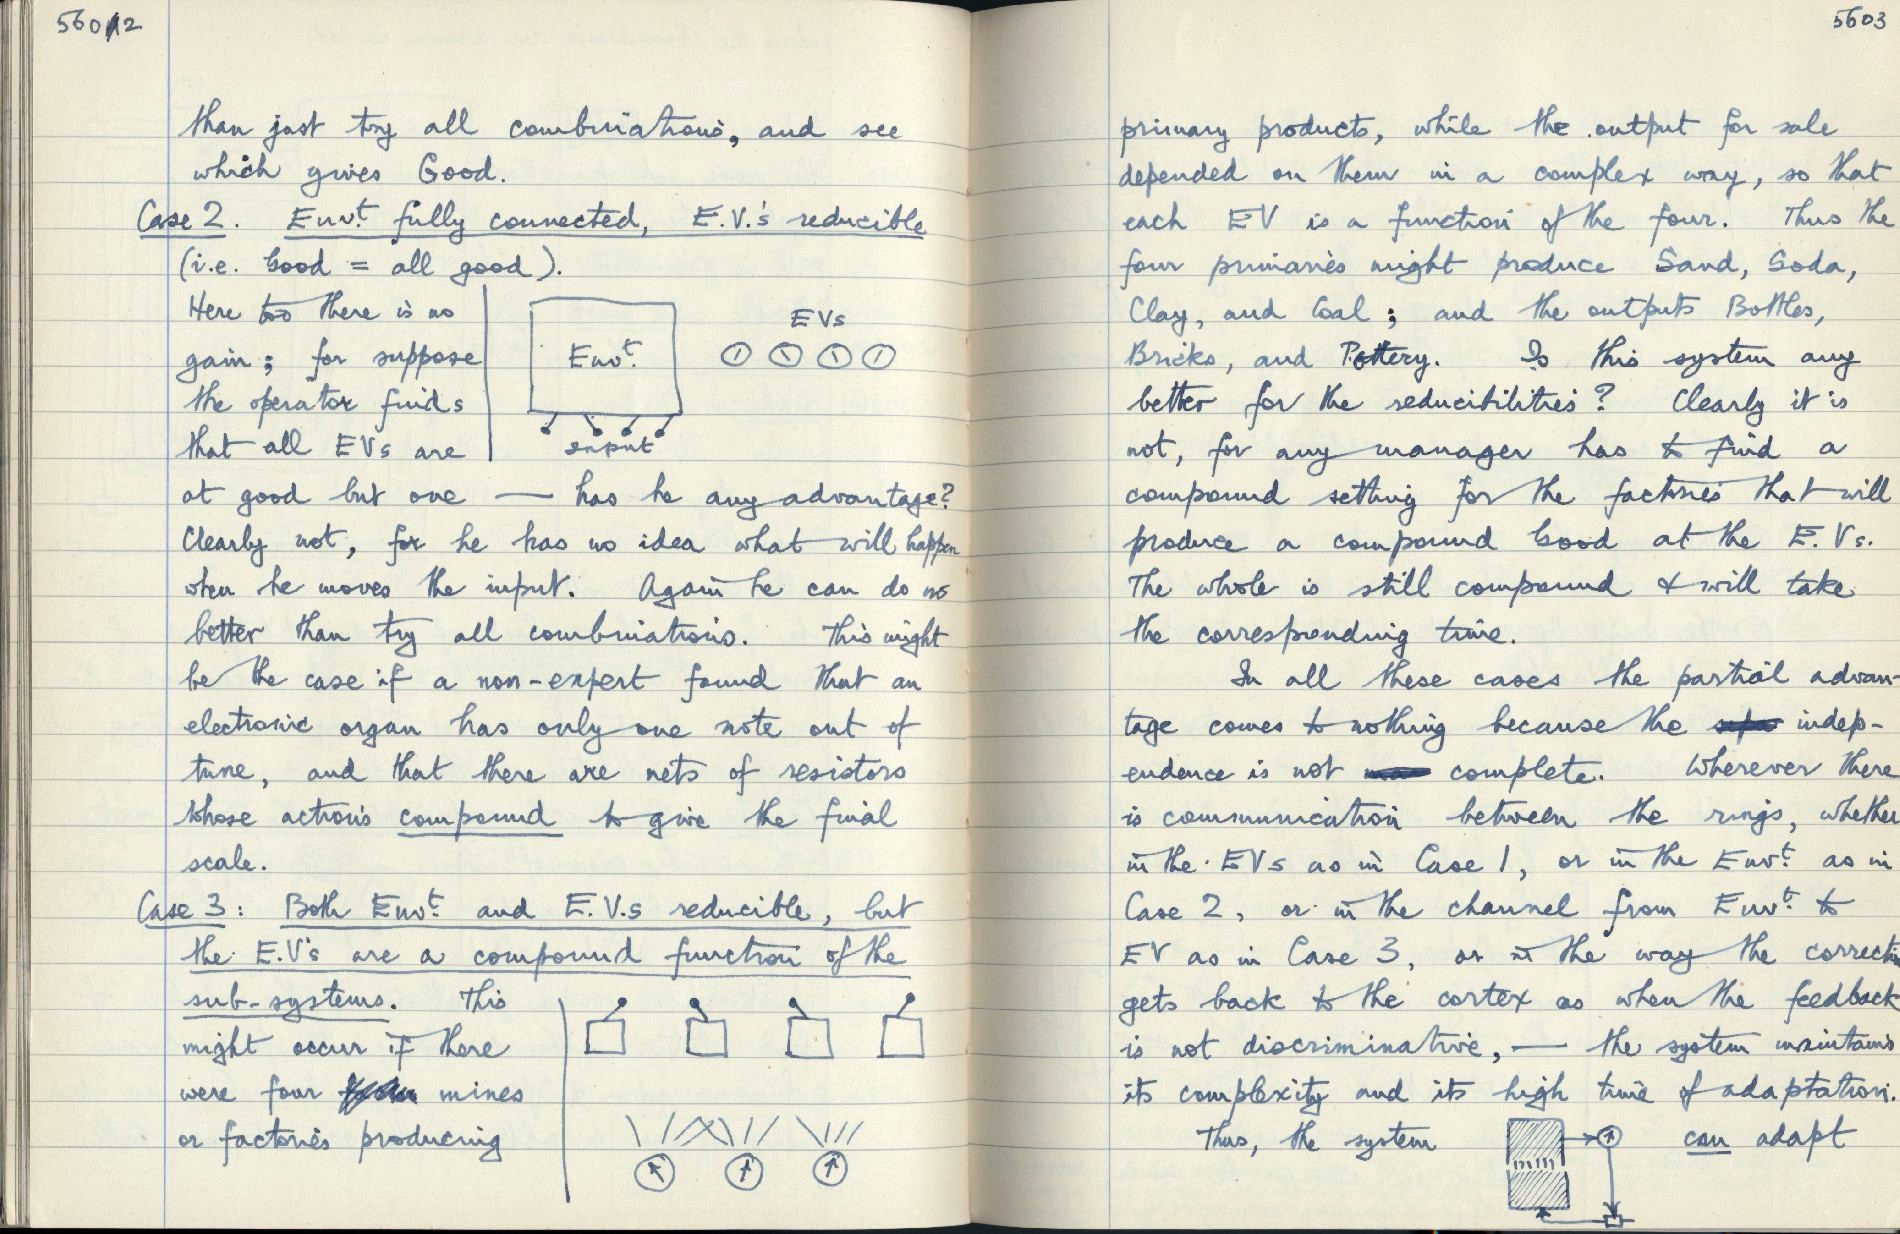 5602
than just try all combinations, and see
which gives Good.
Case 2. Envt. fully connected, E.V.'s reducible
(i.e. Good = all good).
Here too there is no
gain; for suppose
the operator finds
that all EVs are
Envt.
EVs
input
at good but one — has he any advantage?
Clearly not, for he has no idea what will happen
when he moves the input. Again he can do no
better than try all combinations. This might
be the case if a non-expert found that an
electronic organ has only one note out of
tune, and that there are nets of resistors
whose actions compound to give the final
scale.
Case 3: Both Envt. and E.V.s reducible, but
the E.V's are a compound function of the
sub-systems. This
might occur if there
were four mines
or factories producing
5603
primary products, while the output for sale
depended on them in a complex way, so that
each EV is a function of the four. Thus the
four primaries might produce Sand, Soda,
Clay, and Coal; and the outputs Bottles,
Bricks, and Pottery. Is this system any
better for the reducibilities? Clearly it is
not, for any manager has to find a
compound setting for the factories that will
produce a compound Good at the E.Vs.
The whole is still compound & will take
the corresponding time.
In all these cases the partial advan-
tage comes to nothing because the indep-
endence is not complete. Wherever there
is communication between the rings, whether
in the EVs as in Case 1, or in the Envt. as in
Case 2, or in the channel from Envt. to
EV as in Case 3, or in the way the correction
gets back to the cortex as when the feedback
is not discriminative, — the system maintains
its complexity and its high time of adaptation.
Thus, the system can adapt